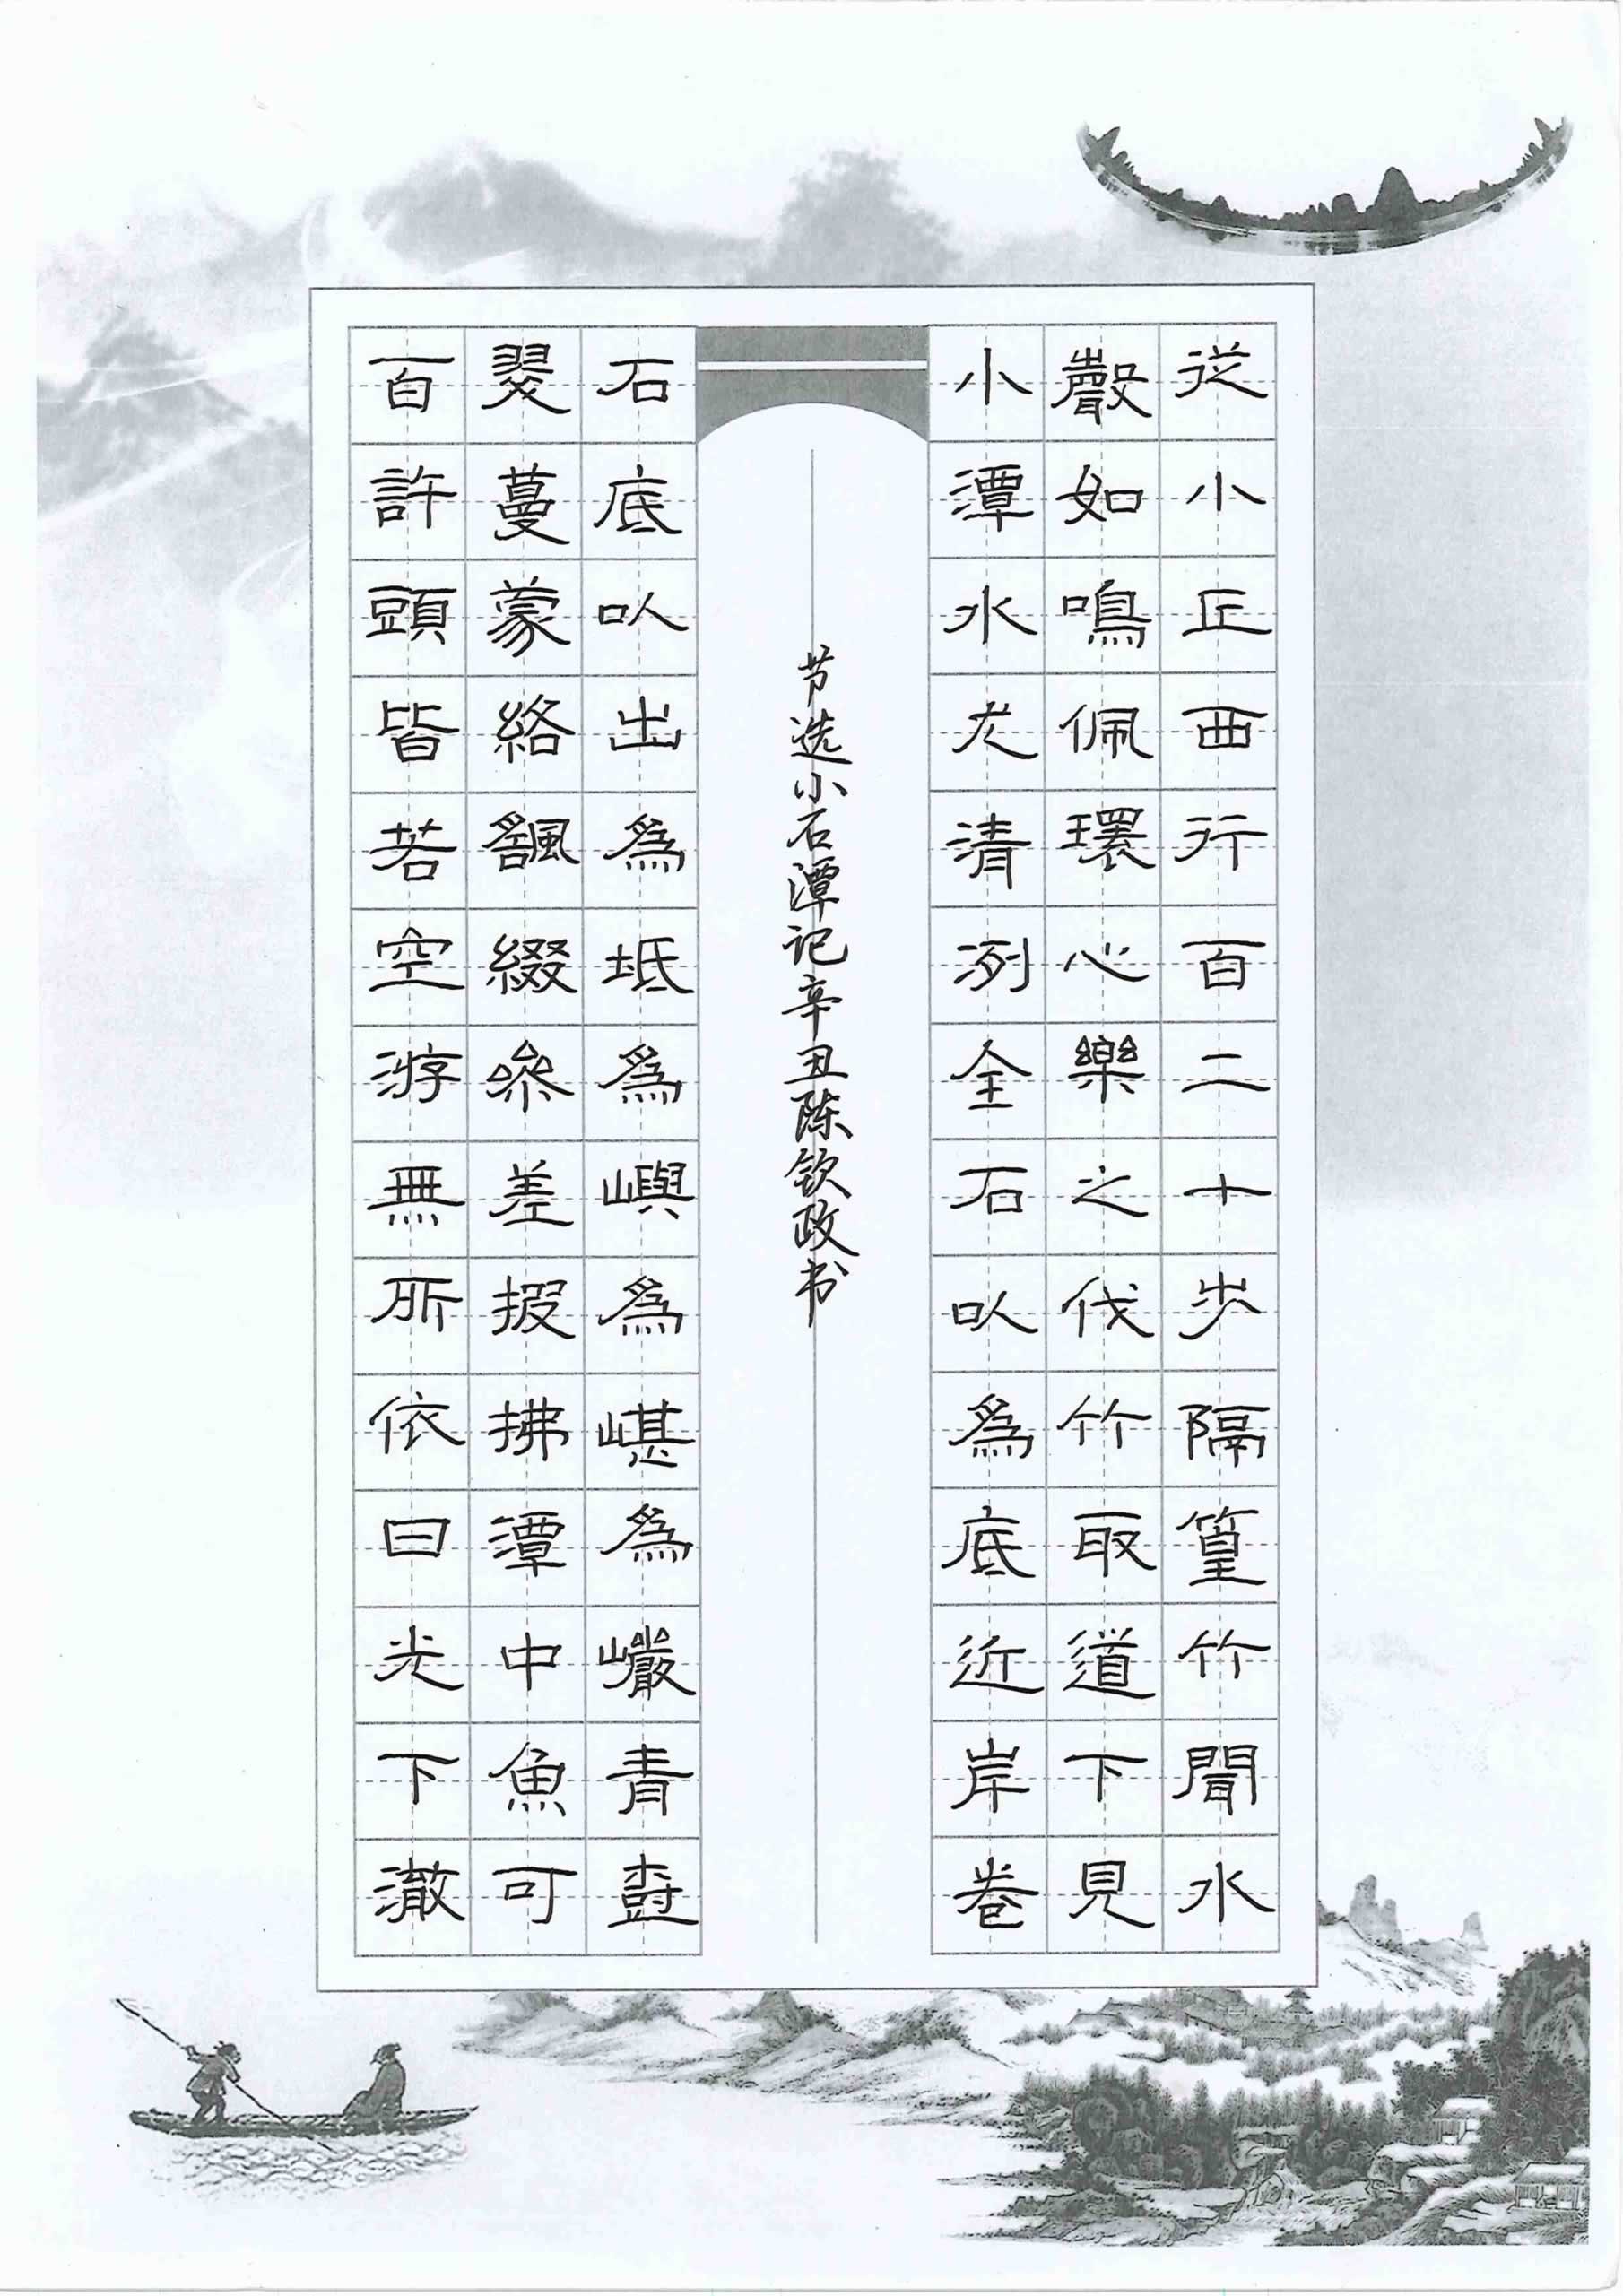 从小丘西行百二十步隔篁竹聞水
聲如鳴佩環心樂之伐竹取道下見
小潭水尤清冽全石以為底近岸卷
石底以出為坻為嶼為嵁為巖青樹
翠蔓蒙絡飖綴參差披拂潭中魚可
百許頭皆若空游無所依日光下澈
节选小石潭记辛丑陈钦政书